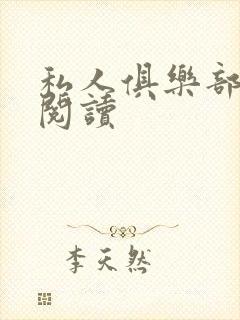 私人俱樂部
閱讀
李天然